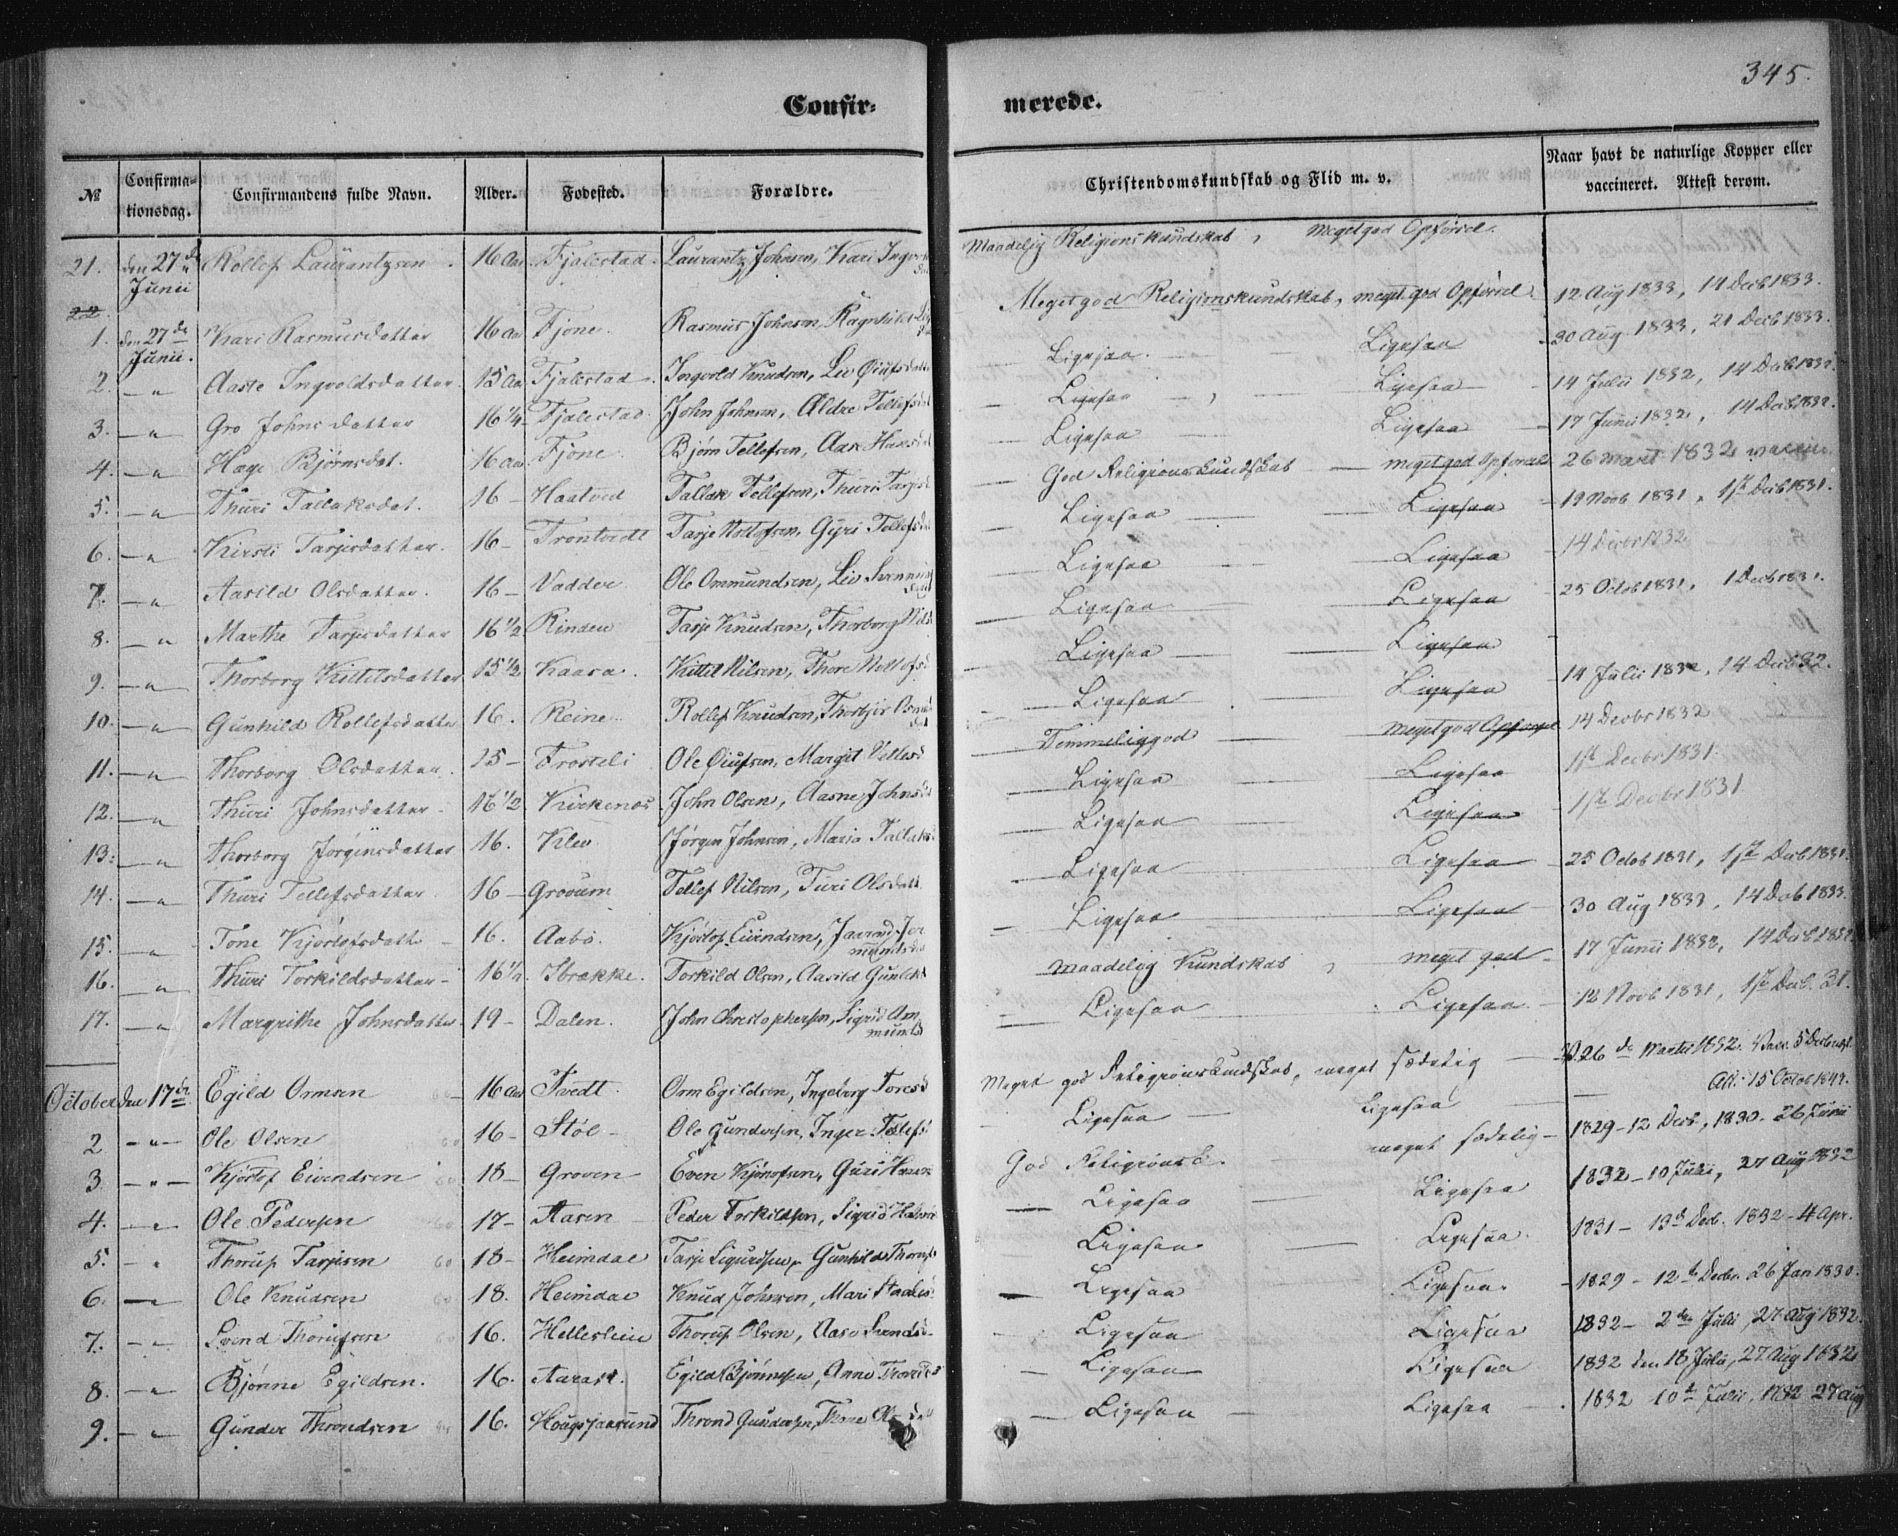 345.
Confir- merede.
№ Confirma-tionsdag. Confirmandens fulde Navn. Alder. Fødested. Forældre. Christendomskundskab og Flid m. v. Naar havt de naturlige Kopper eller vaccineret. Attest derom.
21. den 27de Junii Rollef Laurantzsen 16 Aar Fjalestad. Laurantz Johnsen, Kari Maadelig Religionskundskab, meget god Opførsel.
22.
1. den 27de Junii. Kari Rasmusdatter 16 Aar Fjone. Rasmus Johnsen, Meget god Religionskundskab, meget god Opførsel 12 Aug 1833, 14 Decb 1833.
2. — " Aaste Ingvoldsdatter 15 Aar Fjalestad. Ingvold Knudsen, Liv Ligesaa Ligesaa 30 Aug. 1833, 21 Decb 1833.
3. — " Gro Johnsdatter 16 1/4 Fjalestad. John Johnsen, Ligesaa Ligesaa 14 Julii 1832, 14 Decb 1832.
4. — " Hæge Bjørnsdat. 16 Aar Fjone Bjørn Tellefsen, Ligesaa Ligesaa 17 Junii 1832, 14 Decb 1832.
5. — " Thuri Tallaksdat. 16 — Haatved Tallak Tellefsen, Thuri God Religionskundskab — meget god Opførsel 26 Marts 1832
6. — " Kirsti Tarjesdatter. 16 — Trontvedt Tarje Rollefsen, Gyri Ligesaa Ligesaa 19 Novb 1831, 1ste Decb 1831.
7. — " Aasild Olsdatter. 16 — Vadder Ole Ommundsen, Liv Ligesaa Ligesaa 14 Decbr 1832
8. — " Marthe Tarjesdatter 16 1/2 Rinden Tarje Knudsen, Thorborg Ligesaa Ligesaa 25 Octob 1831, 1 Decb 1831.
9. — " Thorborg Kittelsdatter 15 1/2 Kaasa. Kittel Nilsen, Thore Ligesaa Ligesaa
10. — " Gunhild Rollefsdatter 16. Reine. Rollef Knudsen, Ligesaa Ligesaa 14 Julii 1832, 14 Decb 32.
11. — " Thorborg Olsdatter. 25 — Frosteli Ole Øiufsen, Margit Temmelig god meget god Opførsel 14 Decbr 1832
12. — " Thuri Johnsdatter 16 1/2 Kirkenæs John Olsen, Aasne Ligesaa Ligesaa 1ste Decbr 1831.
13. — " Thorborg Jørginsdatter 16. Klev Jørgen Johnsen, Maria Ligesaa Ligesaa 1ste Decbr 1831
14. — " Thuri Tellefsdatter. 16 — Grooum Tellef Nilsen, Turi Olsdatt Ligesaa Ligesaa 25 Octob 1831, 1ste Decb 1831.
15. — " Tone Kjøstofsdatt 16. Aabø. Kjøstof Eivindsen, Ligesaa Ligesaa 30 Aug 1833, 14 Decb 1833.
16. — " Thuri Torkildsdatter 16 1/2 Torkild Olsen, Aasild Maadelig Kundskab, meget god 17 Junii 1832, 14 Decb 1832
17. — " Margrithe Johnsdatter 19 — Dalen. John Christophersen, Sigrid Ligesaa Ligesaa 12 Novb 1831, 1ste Decb. 31.
October den 17de Egild Ormsen 16 Aar Tvedt. Orm Egildsen, Ingeborg Meget god Religionskundskab, meget sædelig 26de Martii 1832.
2 — " — Ole Olsen 16 — Støl Ole Gundersen, Inger Ligesaa Ligesaa 15 Octob 1847.
3 — " — Kjøstof Eivendsen 18 — Groven Even Kjøstofsen, Guri God Religionsk. meget sædelig 1829 — 12 Decb, 1830. 26 Junii
4. — " Ole Pedersen 17 — Aasen Peder Torkildsen, Sigrid Ligesaa Ligesaa 1832 — 10 Julii, 27 Aug 1832
5. — " Thoruf Tarjesen 18 — Heimdal Tarje Sigurdsen, Gunhild Ligesaa Ligesaa. 1831 — 13de Decb. 1832 — 4 Apr.
6. — " Ole Knudsen 18. Heimdal Knud Johnsen, Mari Ligesaa Ligesaa 1829 — 12te Decbr. 26 Jan 1830.
7. — " Svend Thorufsen 16. Thoruf Olsen, Aase Ligesaa Ligesaa 1832 — 2den Julii, 27 Aug 1832.
8. — " Bjønne Egildsen. 16. Egild Bjønnesen, Anne Ligesaa Ligesaa 1832 den 18 Julii, 27 Aug 1832
9. — " Gunder Throndsen 16. Thrond Gundersen, Ligesaa Ligesaa 1832 10de Julii, 1832 27 Aug